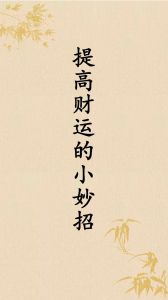 提高财运的小妙招